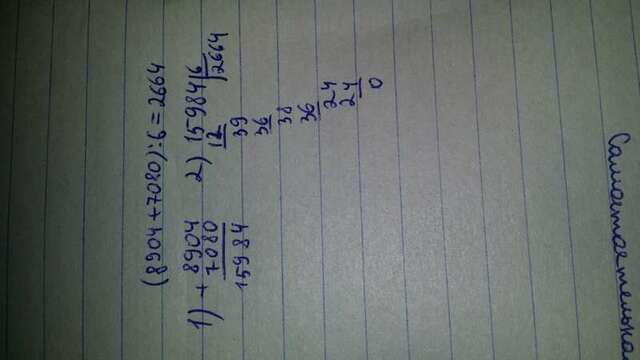 (8904+7080):6=2664
1) + 8904
7080
15984
2) 15984 6
12 2664
39
36
38
36
24
24
0